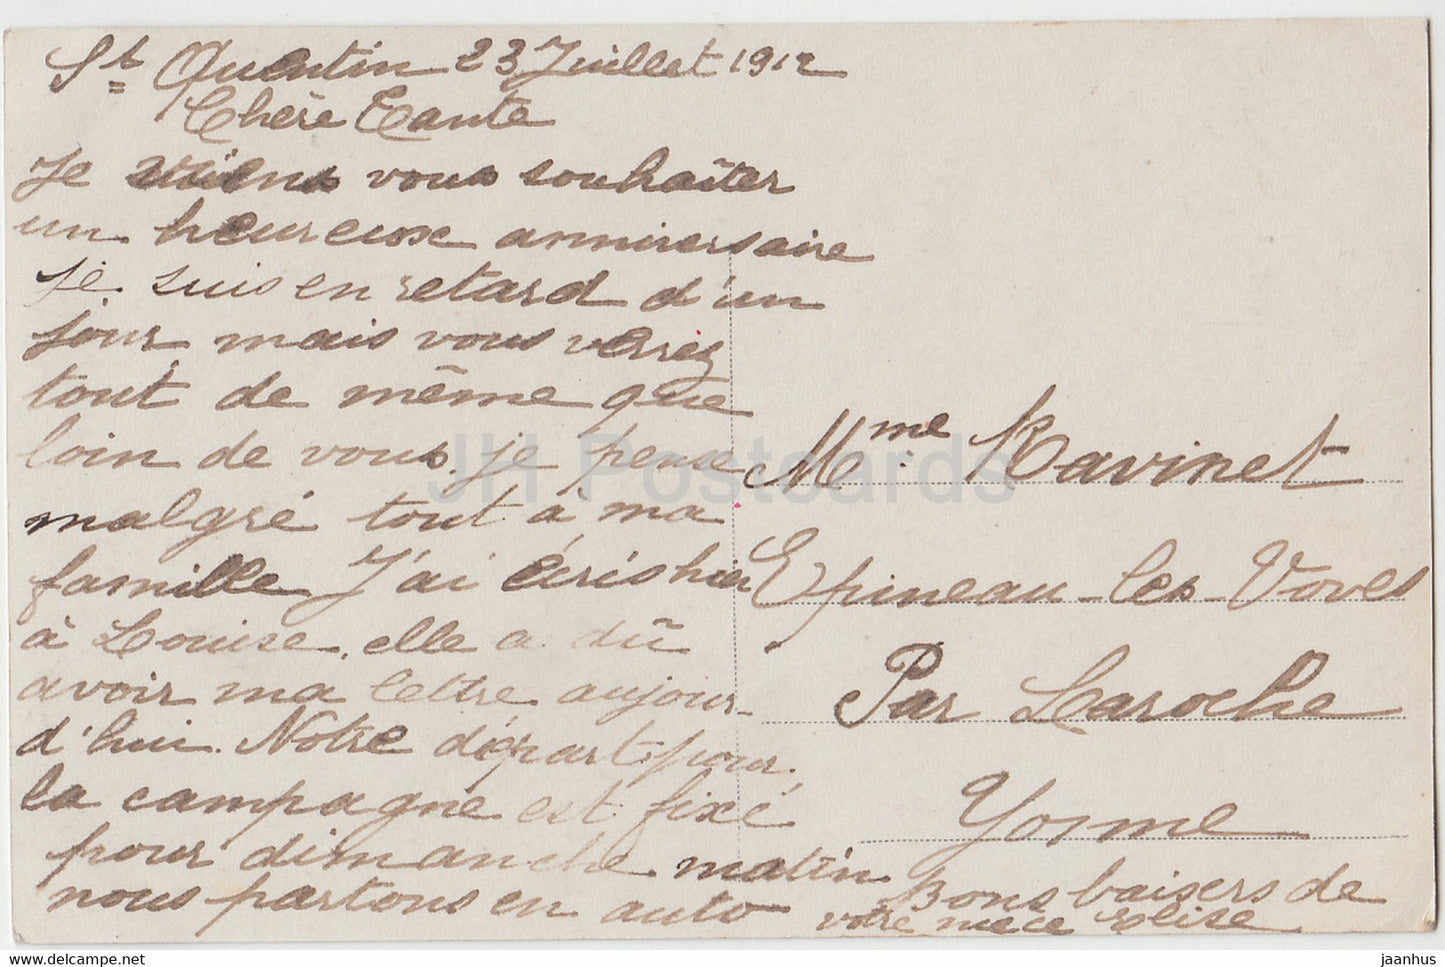 St Quentin 23 Juillet 1912
Chère Tante
Je viens vous souhaiter
un heureux anniversaire
je suis en retard d'un
jour mais vous verrez
tout de même que
loin de vous je pense
malgré tout à ma
famille J'ai écris hier
à Louise. elle a dû
avoir ma lettre aujour-
d'hui. Notre départ pour
la campagne est fixé
pour dimanche matin
nous partons en auto
Mme Ravinet
Epineau-les-Voves
Par Laroche
Yonne
Bons baisers de
votre nièce Elise
JH Postcards
www.delcampe.net
jaanhus